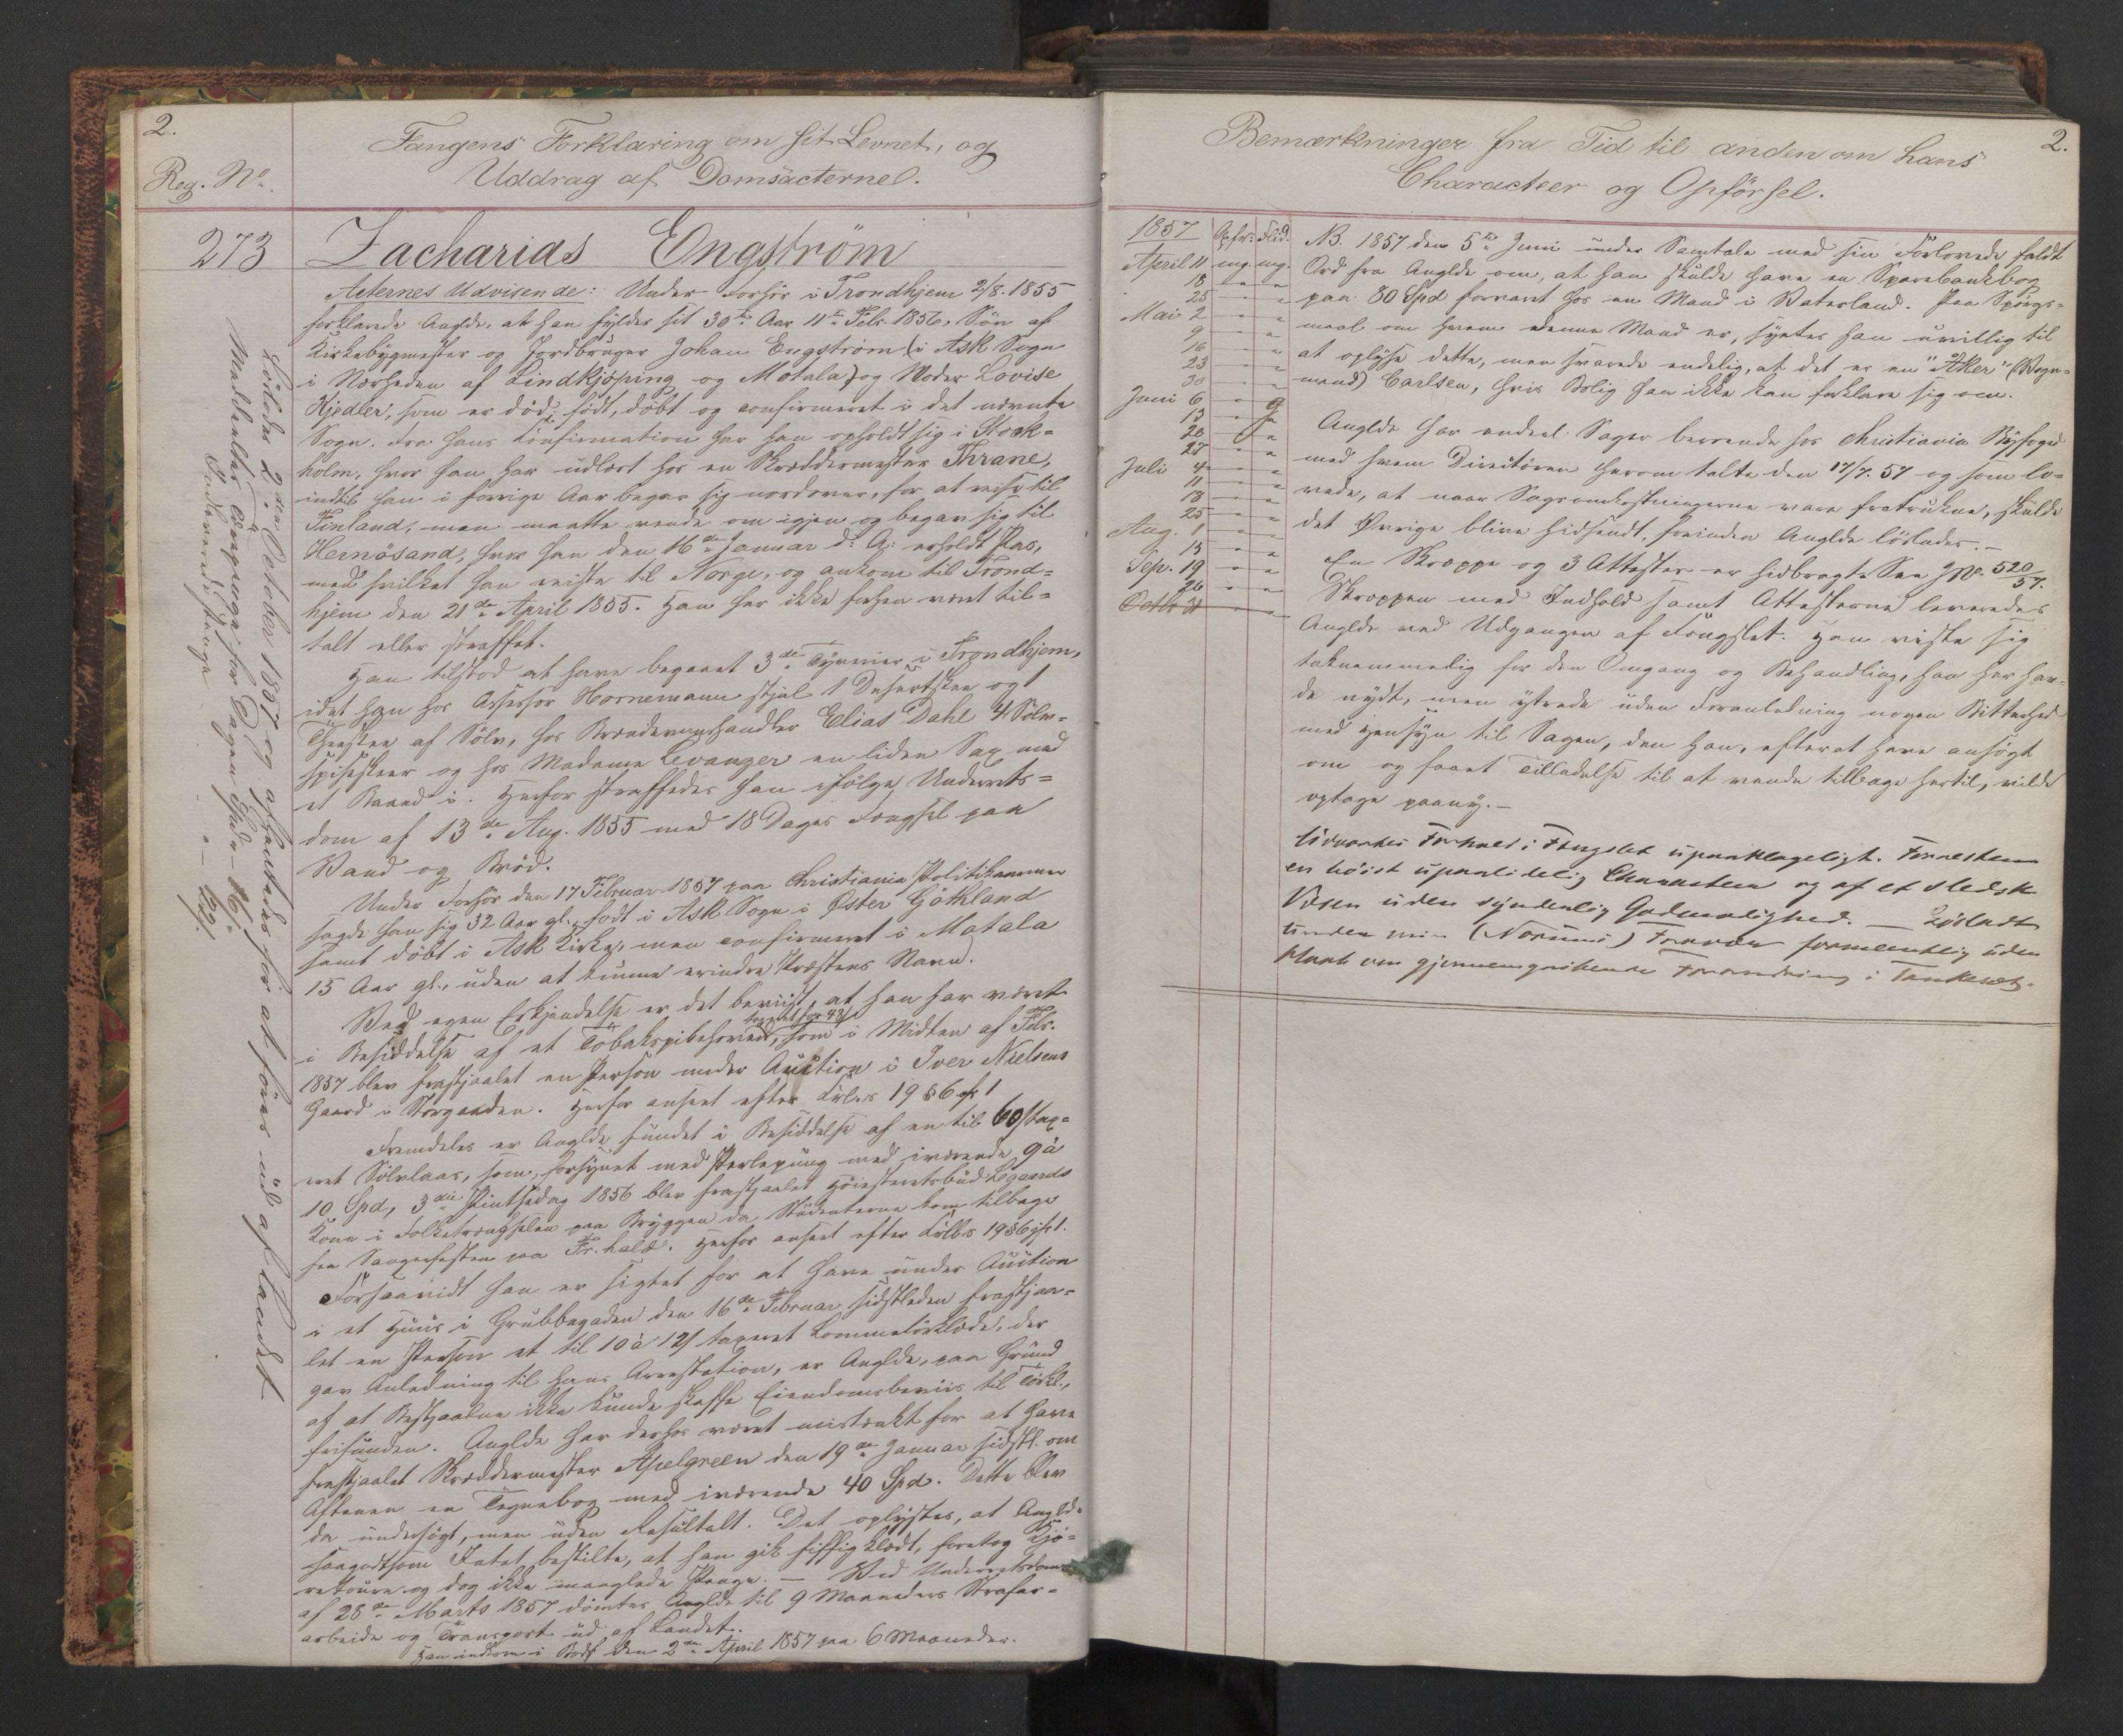 2.
Fangens Forklaring om sit Levnet, og
Uddrag af Domsacterne.
Reg. No.
273
Zacharias Engström
Acternes Udvisende: Under Forhör i Trondhjem 2/8. 1855
forklarede Anglde, at han fylder sit 30te Aar 11te Febr. 1856, Sön af
Kirkebygmester og Jordbruger Johan Engström (i Ask Sogn
i Nærheden af Lindkjöping og Motala) og Moder Lovise
Hjedler, som er död, födt, döbt og confirmeret i det nævnte
Sogn. Fra hans Confirmation har han opholdt sig i Stock=
holm, hvor han har udlært hos en Skræddermester Thrane,
indtil han i forrige Aar begav sig nordover, for at reise til
Finland, men maatte vende om igjen og begav sig til
Hernösand, hvor han den 16de Januar d: A: erholdt Pas,
med hvilket han reiste til Norge, og ankom til Trond=
hjem den 21de April 1855. Han har ikke forhen været til=
talt eller straffet.
Han tilstod at have begaaet 3de Tyverier i Trondhjem,
idet han hos Assessor Hornemann stjal 1 Desertskee og 1
Theeskee af Sölv, hos Brændeviinshandler Elias Dahl 4 Sölv=
spiseskeer og hos Madame Levanger en liden Sax med
et Baand i. Herfor straffedes han ifölge Underrets=
dom af 13de Aug. 1855 med 18 Dages Fængsel paa
Vand og Bröd.
Under Forhör den 17 Februar 1857 paa Christiania Politikammer
sagde han sig 32 Aar gl., födt i Ask Sogn i Öster Göthland
samt döbt i Ask Kirke, men confirmeret i Motala
15 Aar gl., uden at kunne erindre Præstens Navn.
Ved egen Erkjendelse er det beviist, at han har været
i Besiddelse af et Tobakspibehoved, taxeret for 48 s som i Midten af Febr.
1857 blev frastjaalet en Person under Auction i Iver Nielsens
Gaard i Storgaden. Herfor anseet efter Crlvs 19 § 6 1
Fremdeles er Anglde fundet i Besiddelse af en til 60 s tax=
eret Sölvlaas, som, forsynet med Perlepung med iværende 9 à
10 Spd, 3die Pintsedag 1856 blev frastjaalet Höiesteretsbud Legaards
Kone i Folketrængselen paa Bryggen da Studenterne kom tilbage
fra Sangerfesten paa Fr. hald. Herfor anseet efter Crlvs 19 § 6 1.
Forsaavidt han er sigtet for at have under Auction
i et Huus i Grubbegaden den 16de Februar sidstleden frastjaa=
let en Person et til 10 à 12 s taxeret Lommetörklæde, der
gav Anledning til hans Arrestation, er Anglde, paa Grund
af at Bestjaalne ikke kunde skaffe Eiendomsbeviis til Törkl.,
frifunden. Anglde har derhos været mistænkt for at have
frastjaalet Skræddermester Apelgreen den 19de Januar sidstl. om
Aftenen en Tegnebog med iværende 40 Spd. Dette blev
da undersögt, men uden Resultatt. Det oplystes, at Anglde
saagodtsom Intet bestilte, at han gik fiffig klædt, foretog Kjö=
retoure og dog ikke manglede Penge. — Ved Underretsdom
af 28de Marts 1857 dömtes Anglde til 9 Maaneders Strafar=
arbeide og Transport ud af Landet.
Han indkom i Bodsf. den 2den April 1857 paa 6 Maaneder.
Lösladt 2den October 1857 og afhentedes for at föres ud af Landet
for Dagen
Bemærkninger fra Tid til anden om hans
Characteer og Opförsel.
2.
1857 Opfr: Flid.
April 11 mg. mg.
18 " "
25 " "
Mai 2 " "
9 " "
16 " "
23 " "
30 " "
Juni 6 " g
13 "
20 " "
27 " "
Juli 4 " "
11 " "
18 " "
25 " "
Aug. 1 " "
15 " "
Sep. 19 " "
26 " "
Octbr 31
NB. 1857 den 5te Juni under Samtale med sin Forlovede faldt
Ord fra Anglde om, at han skulde have en Sparebankbog
paa 80 Spd forvaret hos en Mand i Vaterland. Paa Spörgs=
maal om hvem denne Mand er, syntes han uvillig til
at oplyse dette, men svarede endelig, at det er en "Åker" (Vogn=
mand) Carlsen, hvis Bolig han ikke kan forklare sig om.
Anglde har endeel Sager beroende hos Christiania Byfoged
med hvem Directören herom talte den 17/7. 57 og som lo=
vede, at naar Sagsomkostningerne vare fratrukne, skulde
det Övrige blive hidsendt, forinden Anglde löslades.—
En Skreppe og 3 Attester er hidbragt. See JNo. 520/57.
Skreppen med Indhold samt Attesterne leveredes
Anglde ved Udgangen af Fængslet. Han viste sig
taknemmelig for den Omgang og Behandling, han her hav=
de nydt, men yttrede uden Foranledning nogen Bitterhed
med Hensyn til Sagen, den han, efterat have ansögt
om og faaet Tilladelse til at vende tilbage hertil, vilde
optage paany.—
Udvortes Forhold i Fængslet upaaklageligt. Forresten
en höist upaalidelig Characteer og af et sledsk
Væsen uden synderlig Godmodighed. — Lösladt
formeentlig uden
gjennemgribende Forandring i Tankesæt.